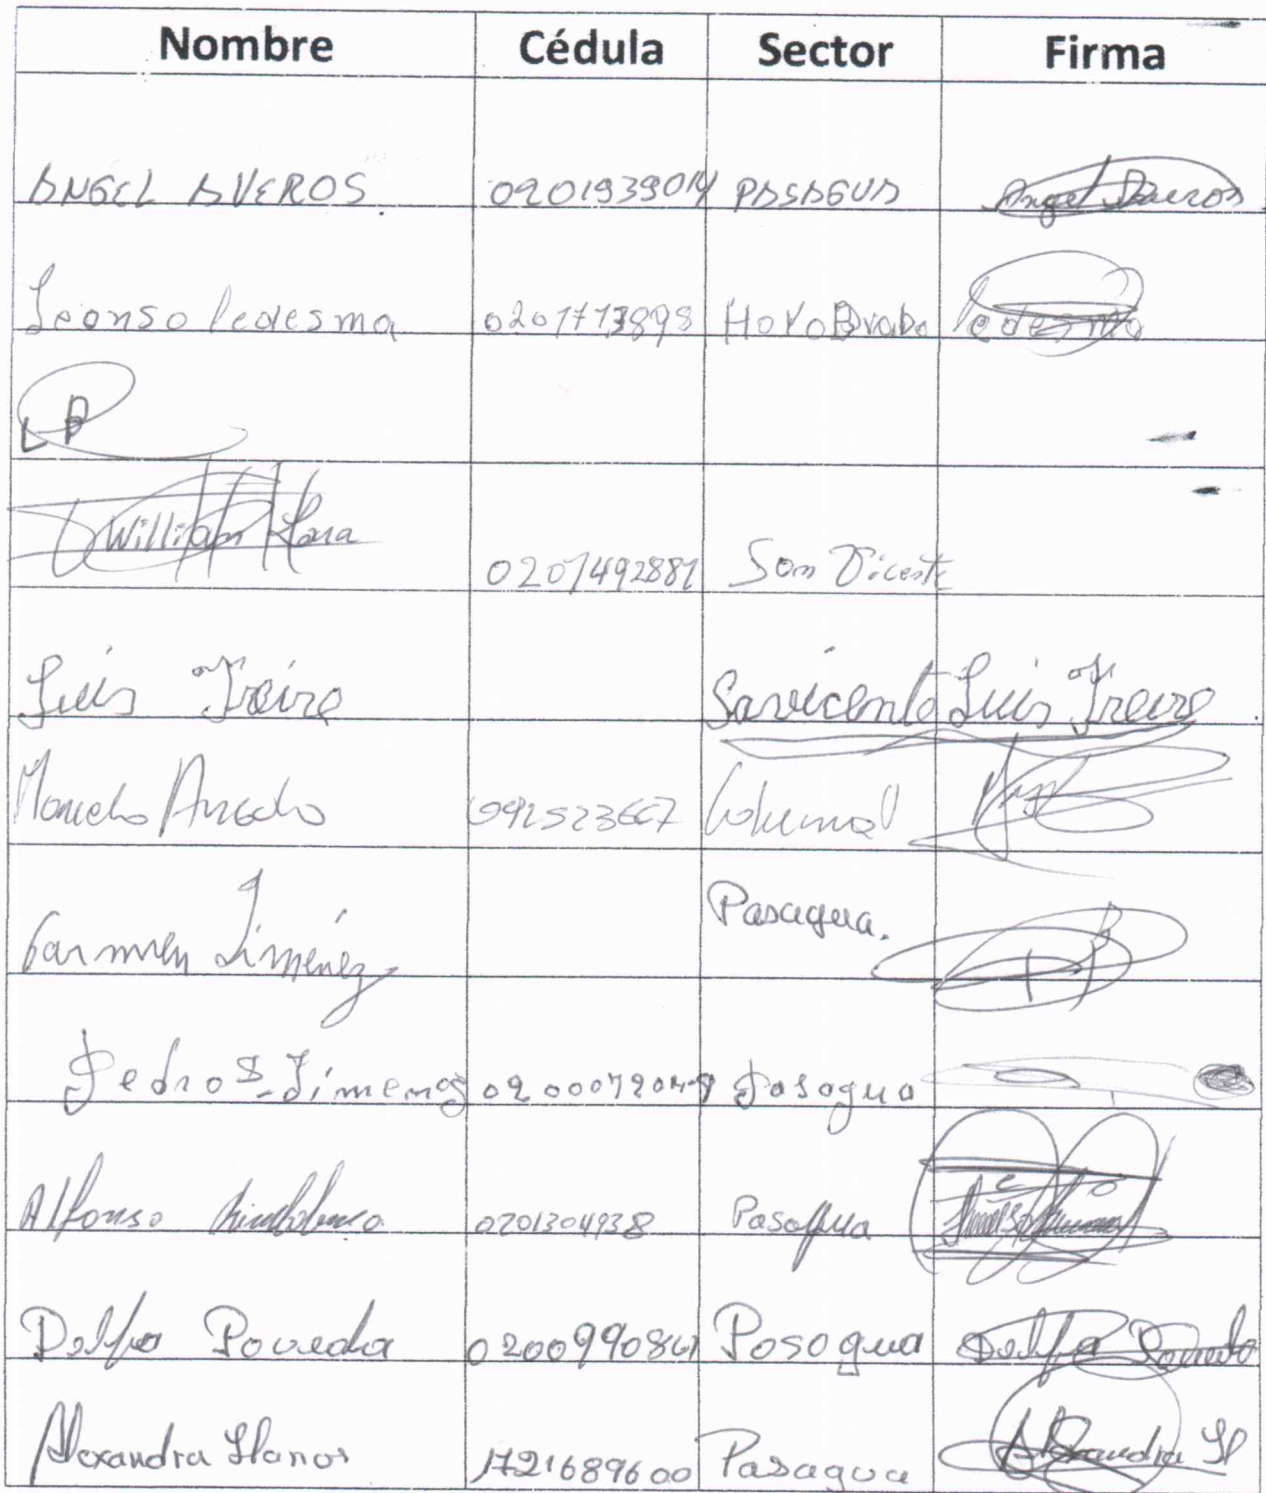 Nombre Cédula Sector Firma
ANGEL AVEROS 0201939014 PASAGUA Angel Averos
Leonso ledesma 0201773898 HoYo Brabo ledesma
William 0201492881 San Vicente
Luis Freire Savicente Luis Freire
092523667
Carmen Jiménez Pasagua.
Pedro S. Jimenes Pasagua
Alfonso 0201304938 Pasagua
Delfa Poveda Posogua Delfa Poveda
Alexandra Llanos 1721689600 Pasagua Alexandra Ll